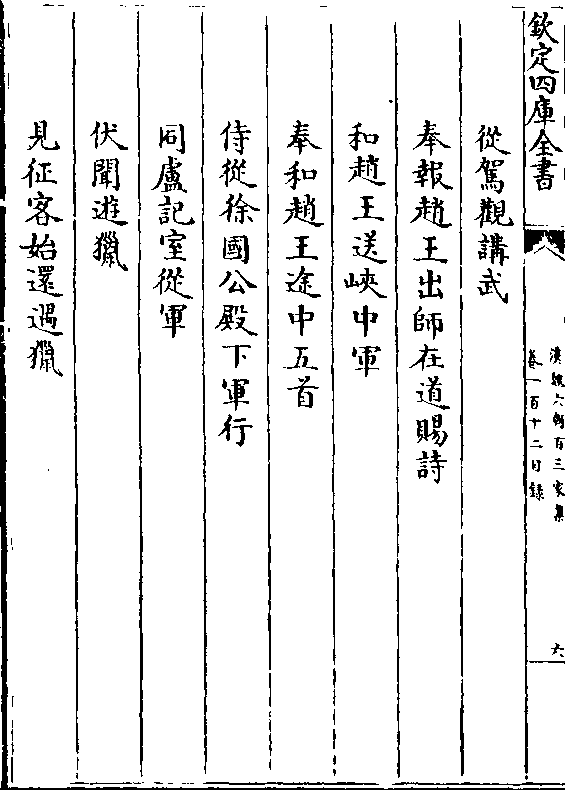 欽定四庫全書
漢魏六朝百三家集
卷一百十二目錄
六
從駕觀講武
奉報趙王出師在道賜詩
和趙王送峽中軍
奉和趙王途中五首
侍從徐國公殿下軍行
同盧記室從軍
伏聞遊獵
見征客始還遇獵